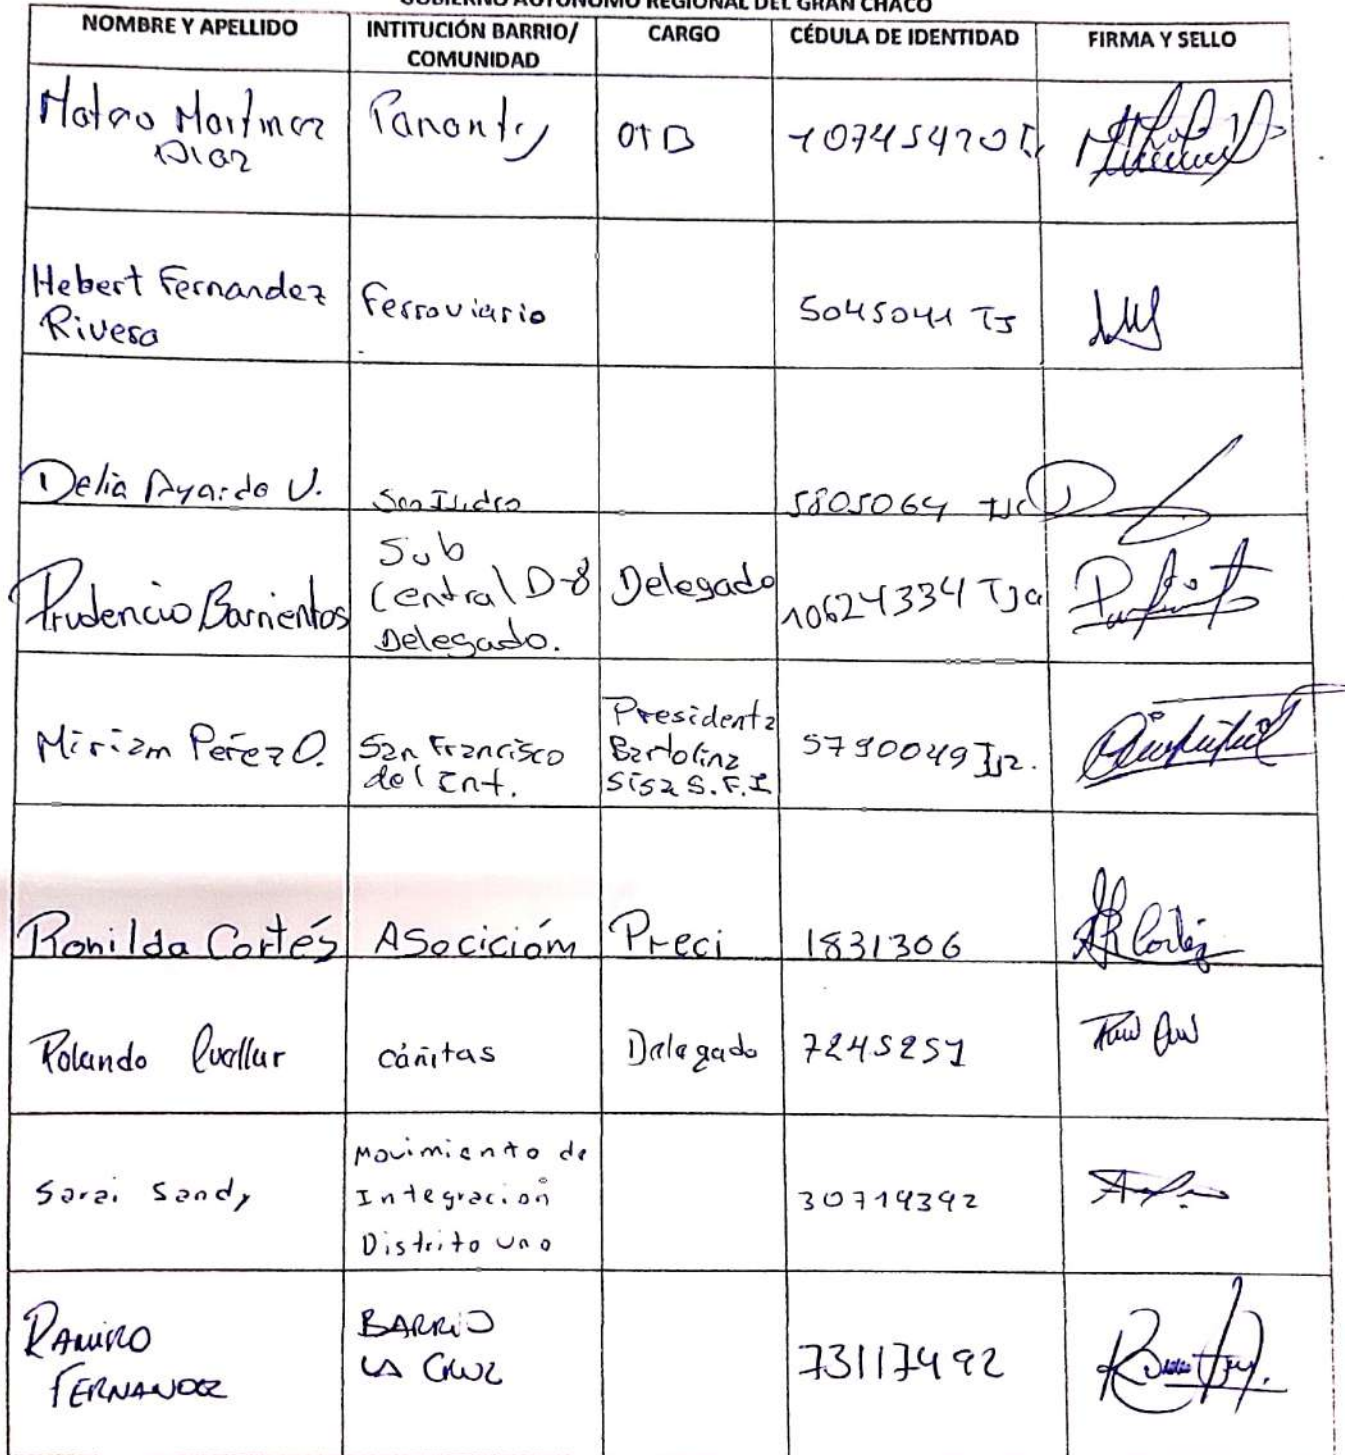 GOBIERNO AUTÓNOMO REGIONAL DEL GRAN CHACO
NOMBRE Y APELLIDO INTITUCIÓN BARRIO/ COMUNIDAD CARGO CÉDULA DE IDENTIDAD FIRMA Y SELLO
Mateo Martinez Diaz OTB
Hebert Fernandez Rivera Ferroviario 5045041 TJ
Delia Ayarde V. San Isidro 5805064
Prudencio Barrientos Sub Central D-8 Delegado. Delegado 10624334 Tja
Miriam Perez O. San Francisco del Int. Presidenta Bartolina Sisa S.F.I 5790049
Ronilda Cortés Asocición Preci 1831306
Rolando cáñitas Delegado 7245251
Sarai Sandy Movimiento de Integración Distrito uno 30719392
RAMIRO FERNANDEZ BARRIO LA CRUZ 73117492